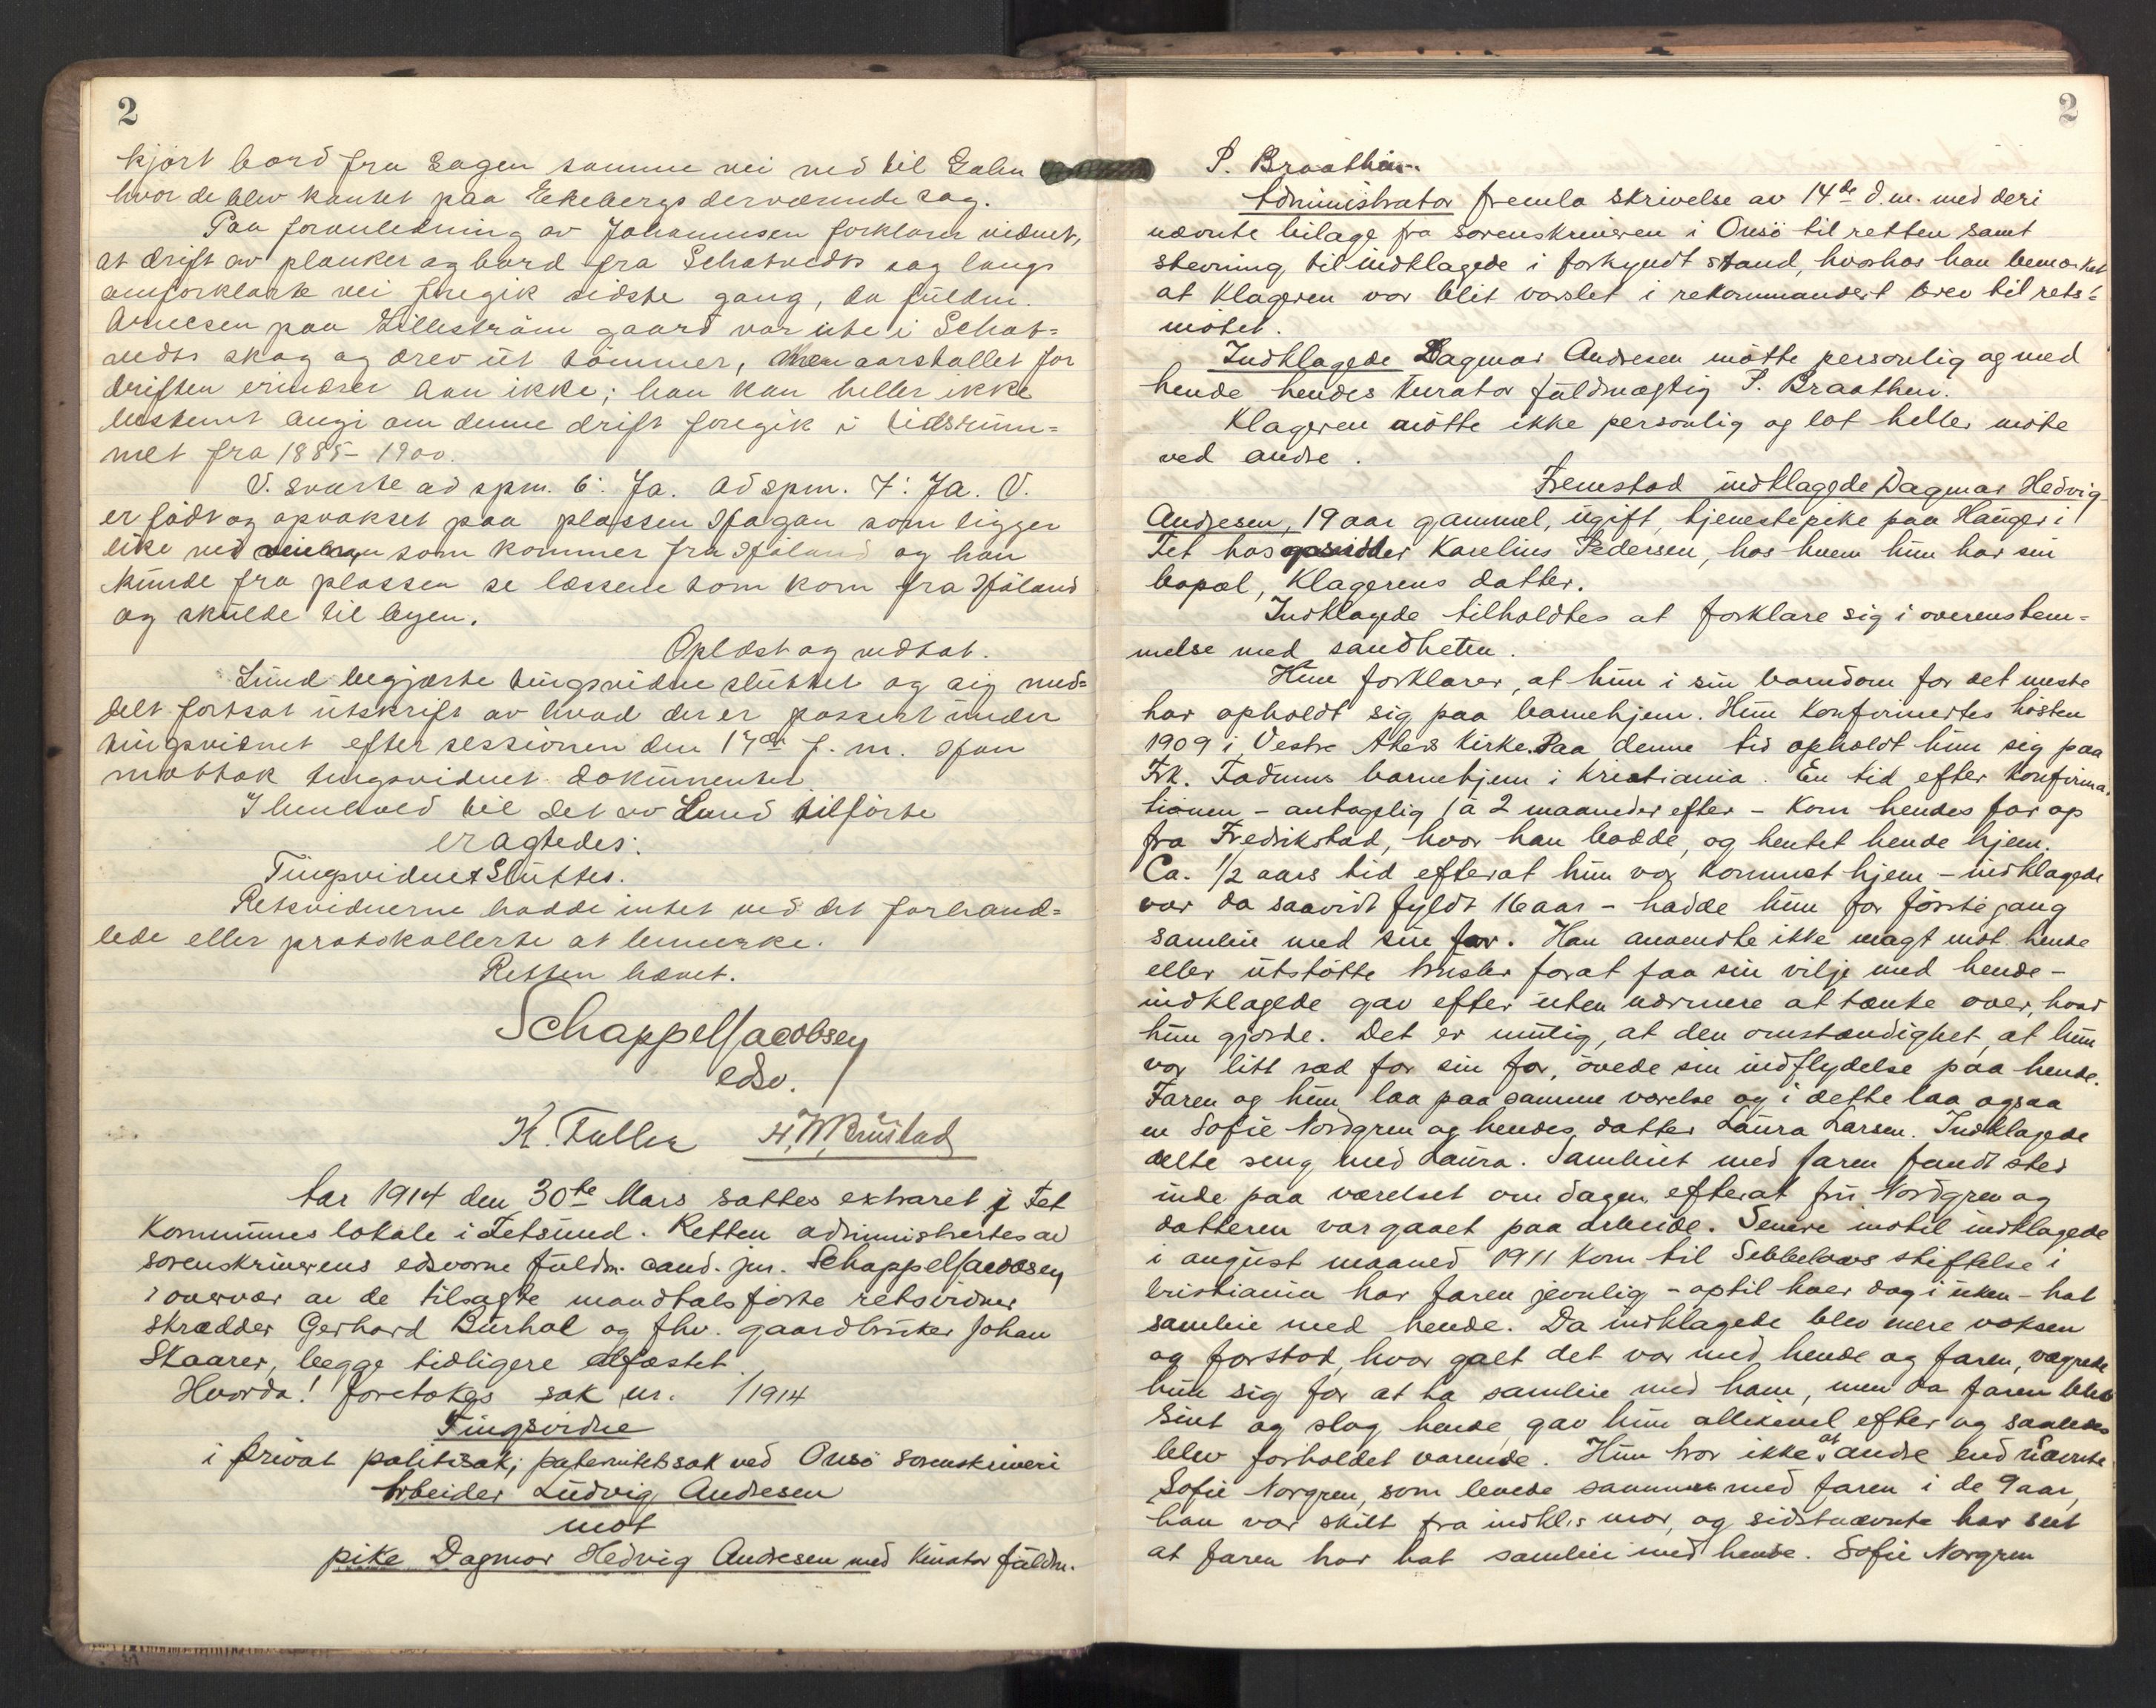 2
kjört bord fra Sagen samme vei ned til Galen
hvor de blev kantet paa Ekebergs derværende sag.
Paa foranledning av Johannesen forklarer vidnet,
at drift av planker og bord fra Schatvedts sag langs
omforklarte vei foregik sidste gang, da fuldm.
Arnesen paa Lilleström gaard var ute i Schat=
vedts skog og drev ut tömmer, men aarstallet for
driften erindrer han ikke; han kan heller ikke
bestemt angi om denne drift foregik i tidsrum=
met fra 1885-1900.
V. svarte ad spm. 6: Ja. Ad spm. 7: Ja. V.
er født og opvokset paa plassen Hagan som ligger
like ved som kommer fra Höland og han
kunde fra plassen se læssene som kom fra Höland
og skulde til byen.
Oplæst og vedtat.
Lund begjærte tingsvidne sluttet og sig med=
delt fortsat utskrift av hvad der er passert under
tingsvidnet efter sessionen den 17de f. m. Han
mottok tingsvidnet dokumenter
I henhold til det av Lund tilförte
eragtedes:
Tingsvidnet Sluttes.
Retsvidnerne hadde intet ved det forhand=
lede eller protokollerte at bemerke.
Retten hævet.
Schappel Jacobsen
edsv.
K. Tuller H. M. Brustad
Aar 1914 den 30te Mars sattes extraret i Fet
Kommunes lokale i Fetsund. Retten administrertes av
sorenskriverens edsvorne fuldm. cand. jur. Schappel Jacobsen
i overvær av de tilsagte mandtalsførte retsvidner
skrædder Gerhard Burhol og fhv. gaardbruker Johan
Skaarer, begge tidligere edfæstet.
Hvorda! foretokes sak nr. /1914
Tingsvidne
i privat politisak; paternitetssak ved Onsö sorenskriveri
Arbeider Ludvig Andresen
mot
pike Dagmar Hedvig Andresen med Kurator fuldm.
2
P. Braathen.
Administrator fremla skrivelse av 14de d.m. med deri
nævnte bilage fra sorenskriveren i Onsö til retten samt
stevning til indklagede i forkyndt stand, hvorhos han bemerket
at Klageren var blit varslet i rekommandert brev til rets=
mötet.
Indklagede Dagmar Andresen mötte personlig og med
hende hendes Kurator fuldmægtig P. Braathen.
Klageren mötte ikke personlig og lot heller möte
ved andre.
Fremstod indklagede Dagmar Hedvig
Andresen, 19 aar gammel, ugift, tjenestepike paa Hauger i
Fet hos opsidder Karelius Pedersen, hos hvem hun har sin
bopæl, Klagerens datter.
Indklagede tilholdtes at forklare sig i overenstem=
melse med sandheten.
Hun forklarer, at hun i sin barndom for det meste
har opholdt sig paa barnehjem. Hun Konfirmertes hösten
1909 i Vestre Akers Kirke. Paa denne tid opholdt hun sig paa
Frk. Fadums barnehjem i Kristiania. En tid efter Konfirma-
tionen - antagelig 1 à 2 maaneder efter - kom hendes far op
fra Fredrikstad, hvor han bodde, og hentet hende hjem.
Ca. 1/2 aars tid efterat hun var kommet hjem - indklagede
var da saavidt fyldt 16 aar - hadde hun for förste gang
samleie med sin far. Han anvendte ikke magt mot hende
eller utstötte trusler forat faa sin vilje med hende -
indklagede gav efter uten nærmere at tænke over, hvad
hun gjorde. Det er mulig, at den omstændighet, at hun
var litt ræd for sin far, övede sin indflydelse paa hende.
Faren og hun laa paa samme værelse og i dette laa ogsaa
en Sofie Nordgren og hendes datter Laura Larsen. Indklagede
delte seng med Laura. Samleiet med faren fandt sted
inde paa værelset om dagen efterat fru Nordgren og
datteren var gaaet paa arbeide. Senere indtil indklagede
i august maaned 1911 kom til Sebbelows stiftelse i
Kristiania har faren jevnlig - optil hver dag i uken - hat
samleie med hende. Da indklagede blev mere voksen
og forstod, hvor galt det var med hende og faren, vægrede
hun sig for at ha samleie med ham, men da faren blev
sint og slog hende, gav hun allikevel efter og saaledes
blev forholdet varende. Hun tror ikke at andre end nævnte
Sofie Norgren, som levede sammen med faren i de 9 aar,
han var skilt fra indkl.s mor, og sidstnævnte har set
at faren har hat samleie med hende. Sofie Norgren